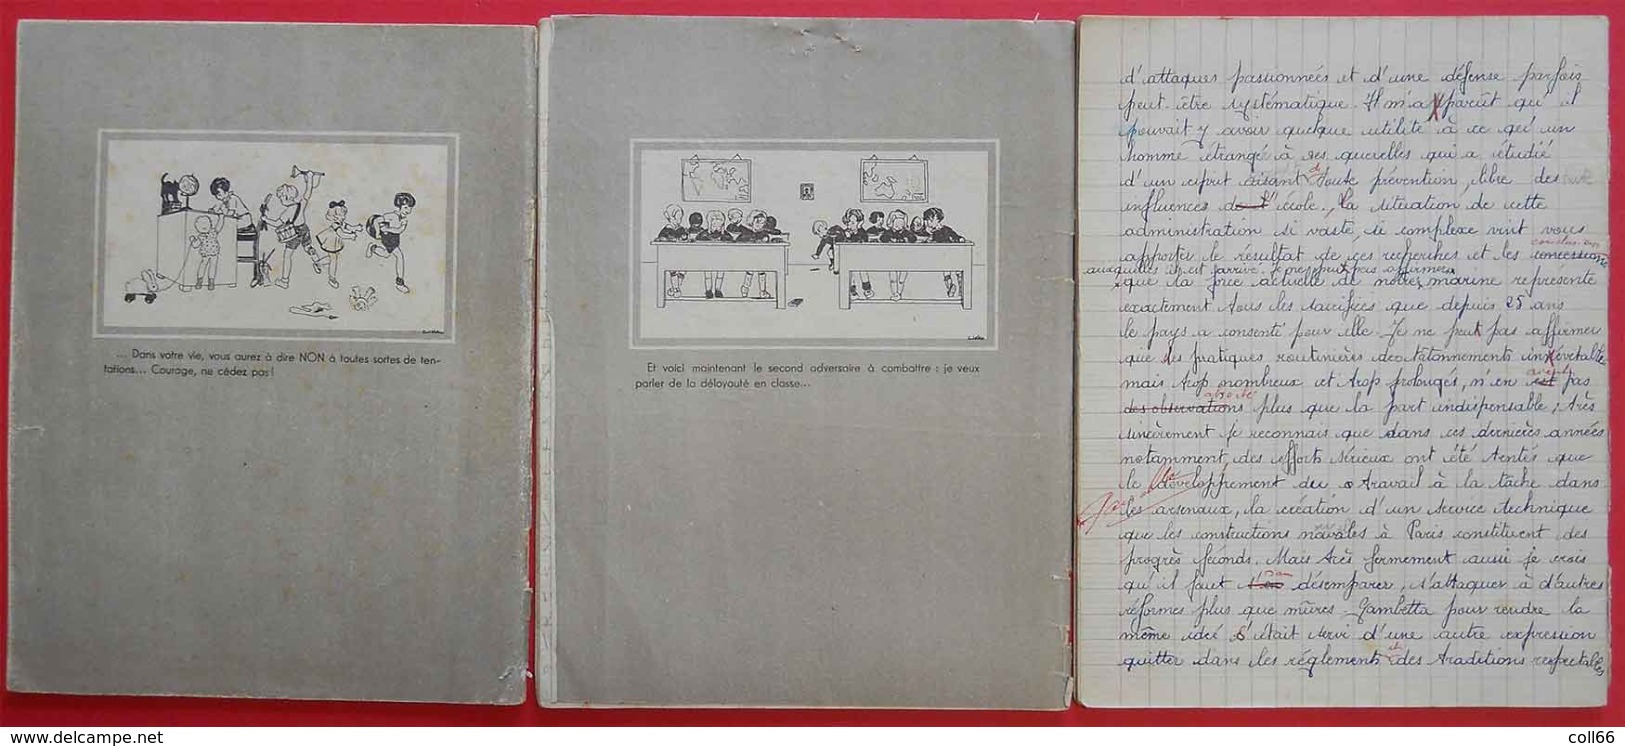 ... Dans votre vie, vous aurez à dire NON à toutes sortes de ten-
tations... Courage, ne cédez pas!
Et voici maintenant le second adversaire à combattre : je veux
parler de la déloyauté en classe...
d'attaques passionnées et d'une défense parfois
peut-être systématique. Il m'apparût qu'il
pouvait y avoir quelque utilité à ce qu'un
homme étranger à ses querelles qui a étudié
d'un esprit de toute prévention, libre des
influences de l'école, la situation de cette
administration si vaste, si complexe vint vous
apporter le résultat de ces recherches et les conclusions
auxquelles il est arrivé. Je ne peux pas affirmer
que la force actuelle de notre marine représente
exactement tous les sacrifices que depuis 25 ans
le pays a consenti pour elle. Je ne peux pas affirmer
que les pratiques routinières des tâtonnements inévitables
mais trop nombreux et trop prolongés, n'en aient pas
des observations absorbé plus que la part indispensable; très
sincèrement je reconnais que dans ces dernières années
notamment des efforts sérieux ont été tentés que
le développement du travail à la tâche dans
les arsenaux, la création d'un service technique
que les constructions navales à Paris constituent des
progrès féconds. Mais très fermement aussi je crois
qu'il faut s'en sans désemparer, s'attaquer à d'autres
réformes plus que mûres. Gambetta pour rendre la
même idée s'était servi d'une autre expression
quitter dans les règlements et des traditions respectables
www.delcampe.net
coll66